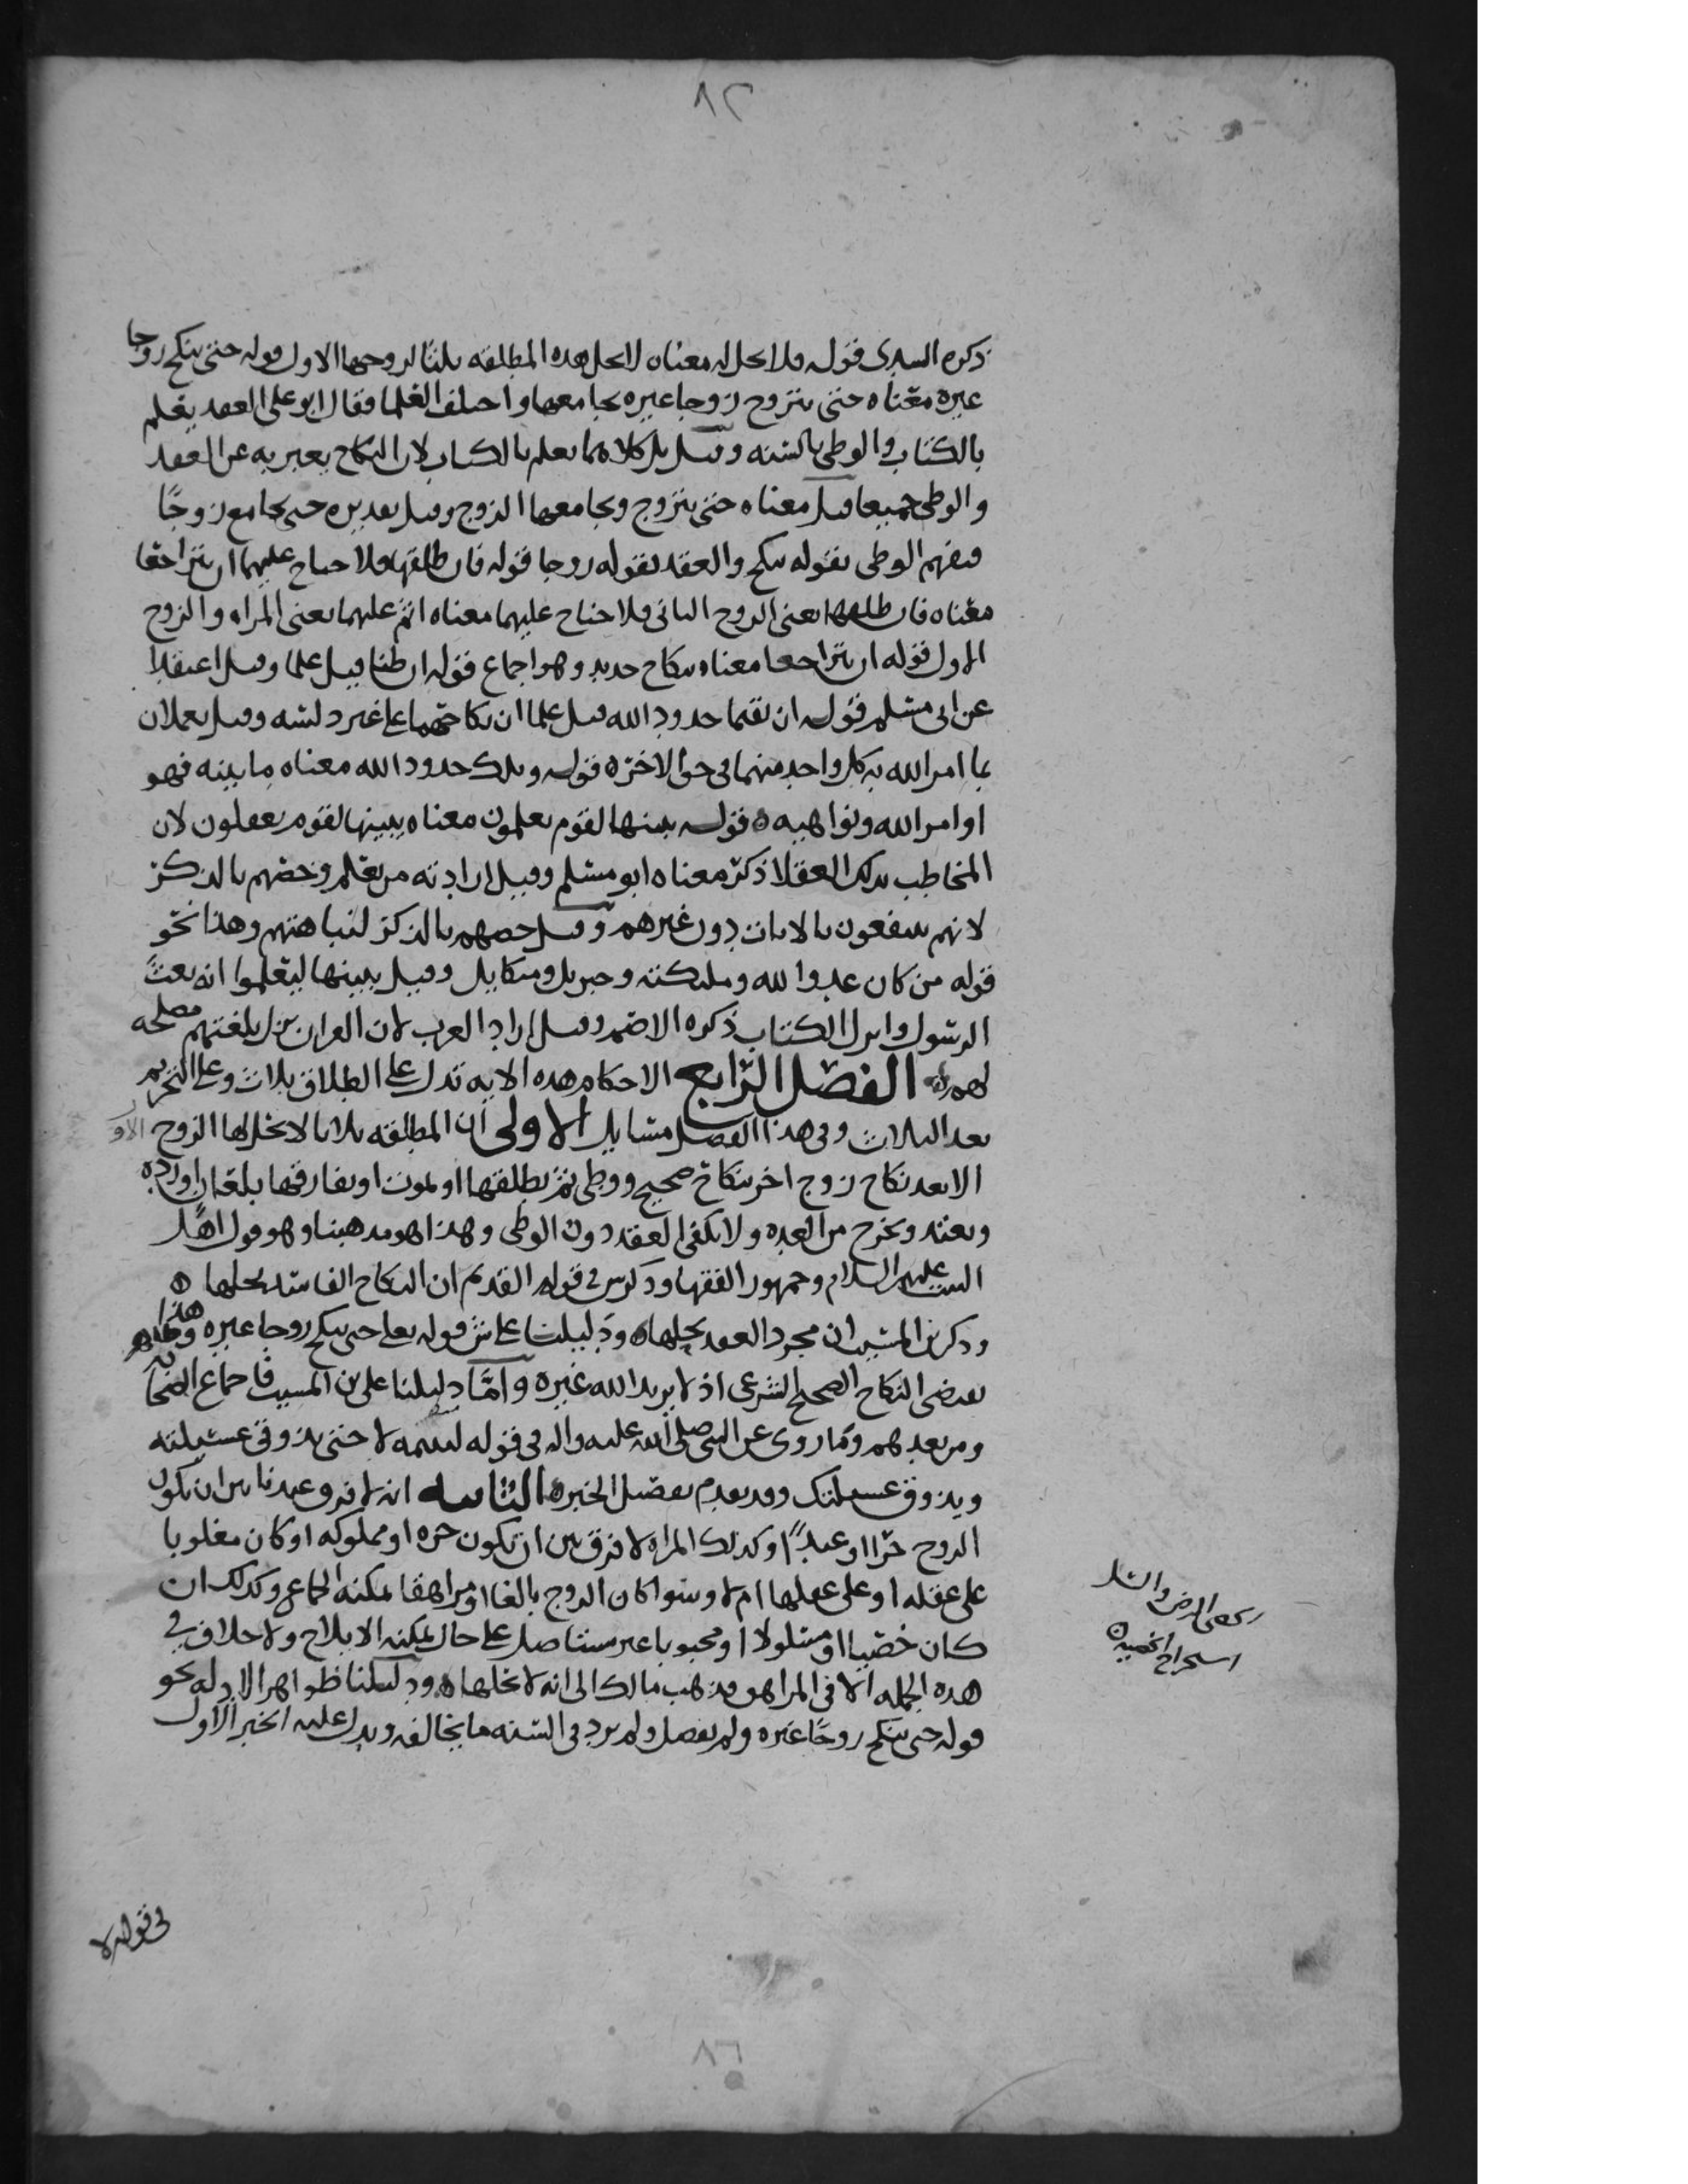 ٨٢
ذكره السدى قوله فلا تحل له معناه لا تحل هده المطلقه ثلثا لزوجها الاول قوله حتى تنكح زوجا
غيره معناه حتى تتزوج زوجا غيره يجامعها واختلف العلما فقال ابو على العقد يعلم
بالكتاب والوطى بالسنه وقيل بل كلاهما يعلم بالكتاب لان النكاح يعبر به عن العقد
والوطى جميعا قيل معناه حتى يتزوج ويجامعها الزوج وقيل تقديره حتى يجامع زوجًا
ففهم الوطى بقوله تنكح والعقد بقوله زوجا قوله فان طلقها فلا جناح عليهما ان يتراجعا
معناه فان طلقها يعنى الزوج الثانى فلا جناح عليهما معناه اثم عليهما يعنى المراه والزوج
الاول قوله ان يتراجعا معناه بنكاح جديد وهو اجماع قوله ان ظنا قيل علما وقيل اعتقدا
عن ابى مسلم قوله ان يقيما حدود الله قيل علما ان نكاحهما على غير دلسه وقيل يعملان
بما امر الله به كل واحد منهما فى حق الاخر ه قوله وتلك حدود الله معناه ما بينه فهو
اوامر الله ونواهيه ه قوله يبينها لقوم يعلمون معناه يبينها لقوم يعقلون لان
المخاطب بذلك العقلا ذكر معناه ابو مسلم وقيل اراد به من يعلم وخصهم بالذكر
لانهم ينتفعون بالايات دون غيرهم وقيل خصهم بالذكر لنباهتهم وهذا نحو
قوله من كان عدوا لله وملئكته وجبريل وميكايل وقيل يبينها ليعلموا انه بعث
الرسول وانزل الكتاب ذكره الاصم وقيل اراد العرب لان القران نزل بلغتهم مصلحه
لهم ه الفصل الرابع الاحكام هده الايه تدل على الطلاق بثلاث وعلى التحريم
بعد الثلاث وفى هذا الفصل مسايل الاولى ان المطلقه ثلاثا لا تحل لها الزوج الاو
الا بعد نكاح زوج اخر بنكاح صحيح ووطى ثم يطلقها او يموت او يفارقها بلعان او رده
وتعتد وتخرج من العده ولا يكفى العقد دون الوطى وهذا هو مذهبنا وهو قول اهل
البيت عليهم السلام وجمهور الفقها وذكر ش فى قوله القديم ان النكاح الفاسد يحلها ه
وذكر بن المسيب ان مجرد العقد يحلها ه ودليلنا على ش قوله تعلى حتى تنكح زوجا غيره وهذا
يقتضى النكاح الصحيح الشرعى اذ لا يريد الله غيره وامّا دليلنا على بن المسيب فاجماع الصحابه
ومن بعدهم وما روى عن النبى صلى الله عليه واله فى قوله لتميمه لا حتى يذوق عسيلته
ويذوق عسيلتك وقد تقدم تفصيل الخبر ه الثانيه انه لا فرق عندنا بين ان يكون
الزوج حرًا او عبدًا وكذلك المراه لا فرق بين ان تكون حره او مملوكه او كان مغلوبا
على عقله او على عقلها ام لا وسوا كان الزوج بالغا او مراهقا يمكنه الجماع وكذلك ان
كان خصيا او مسلولا او مجبوبا غير مستاصل على حال يمكنه الايلاج ولا خلاف فى
هده الجمله الا فى المراهق فذهب مالك الى انه لا يحلها ه ودليلنا ظواهر الادله نحو
قوله حتى تنكح زوجًا غيره ولم يفصل ولم يرد فى السنه ما يخالفه ويدل عليه الخبر الاول
الرض والسل
استخراج الخصيه ه
فى قوله لا
٨٦